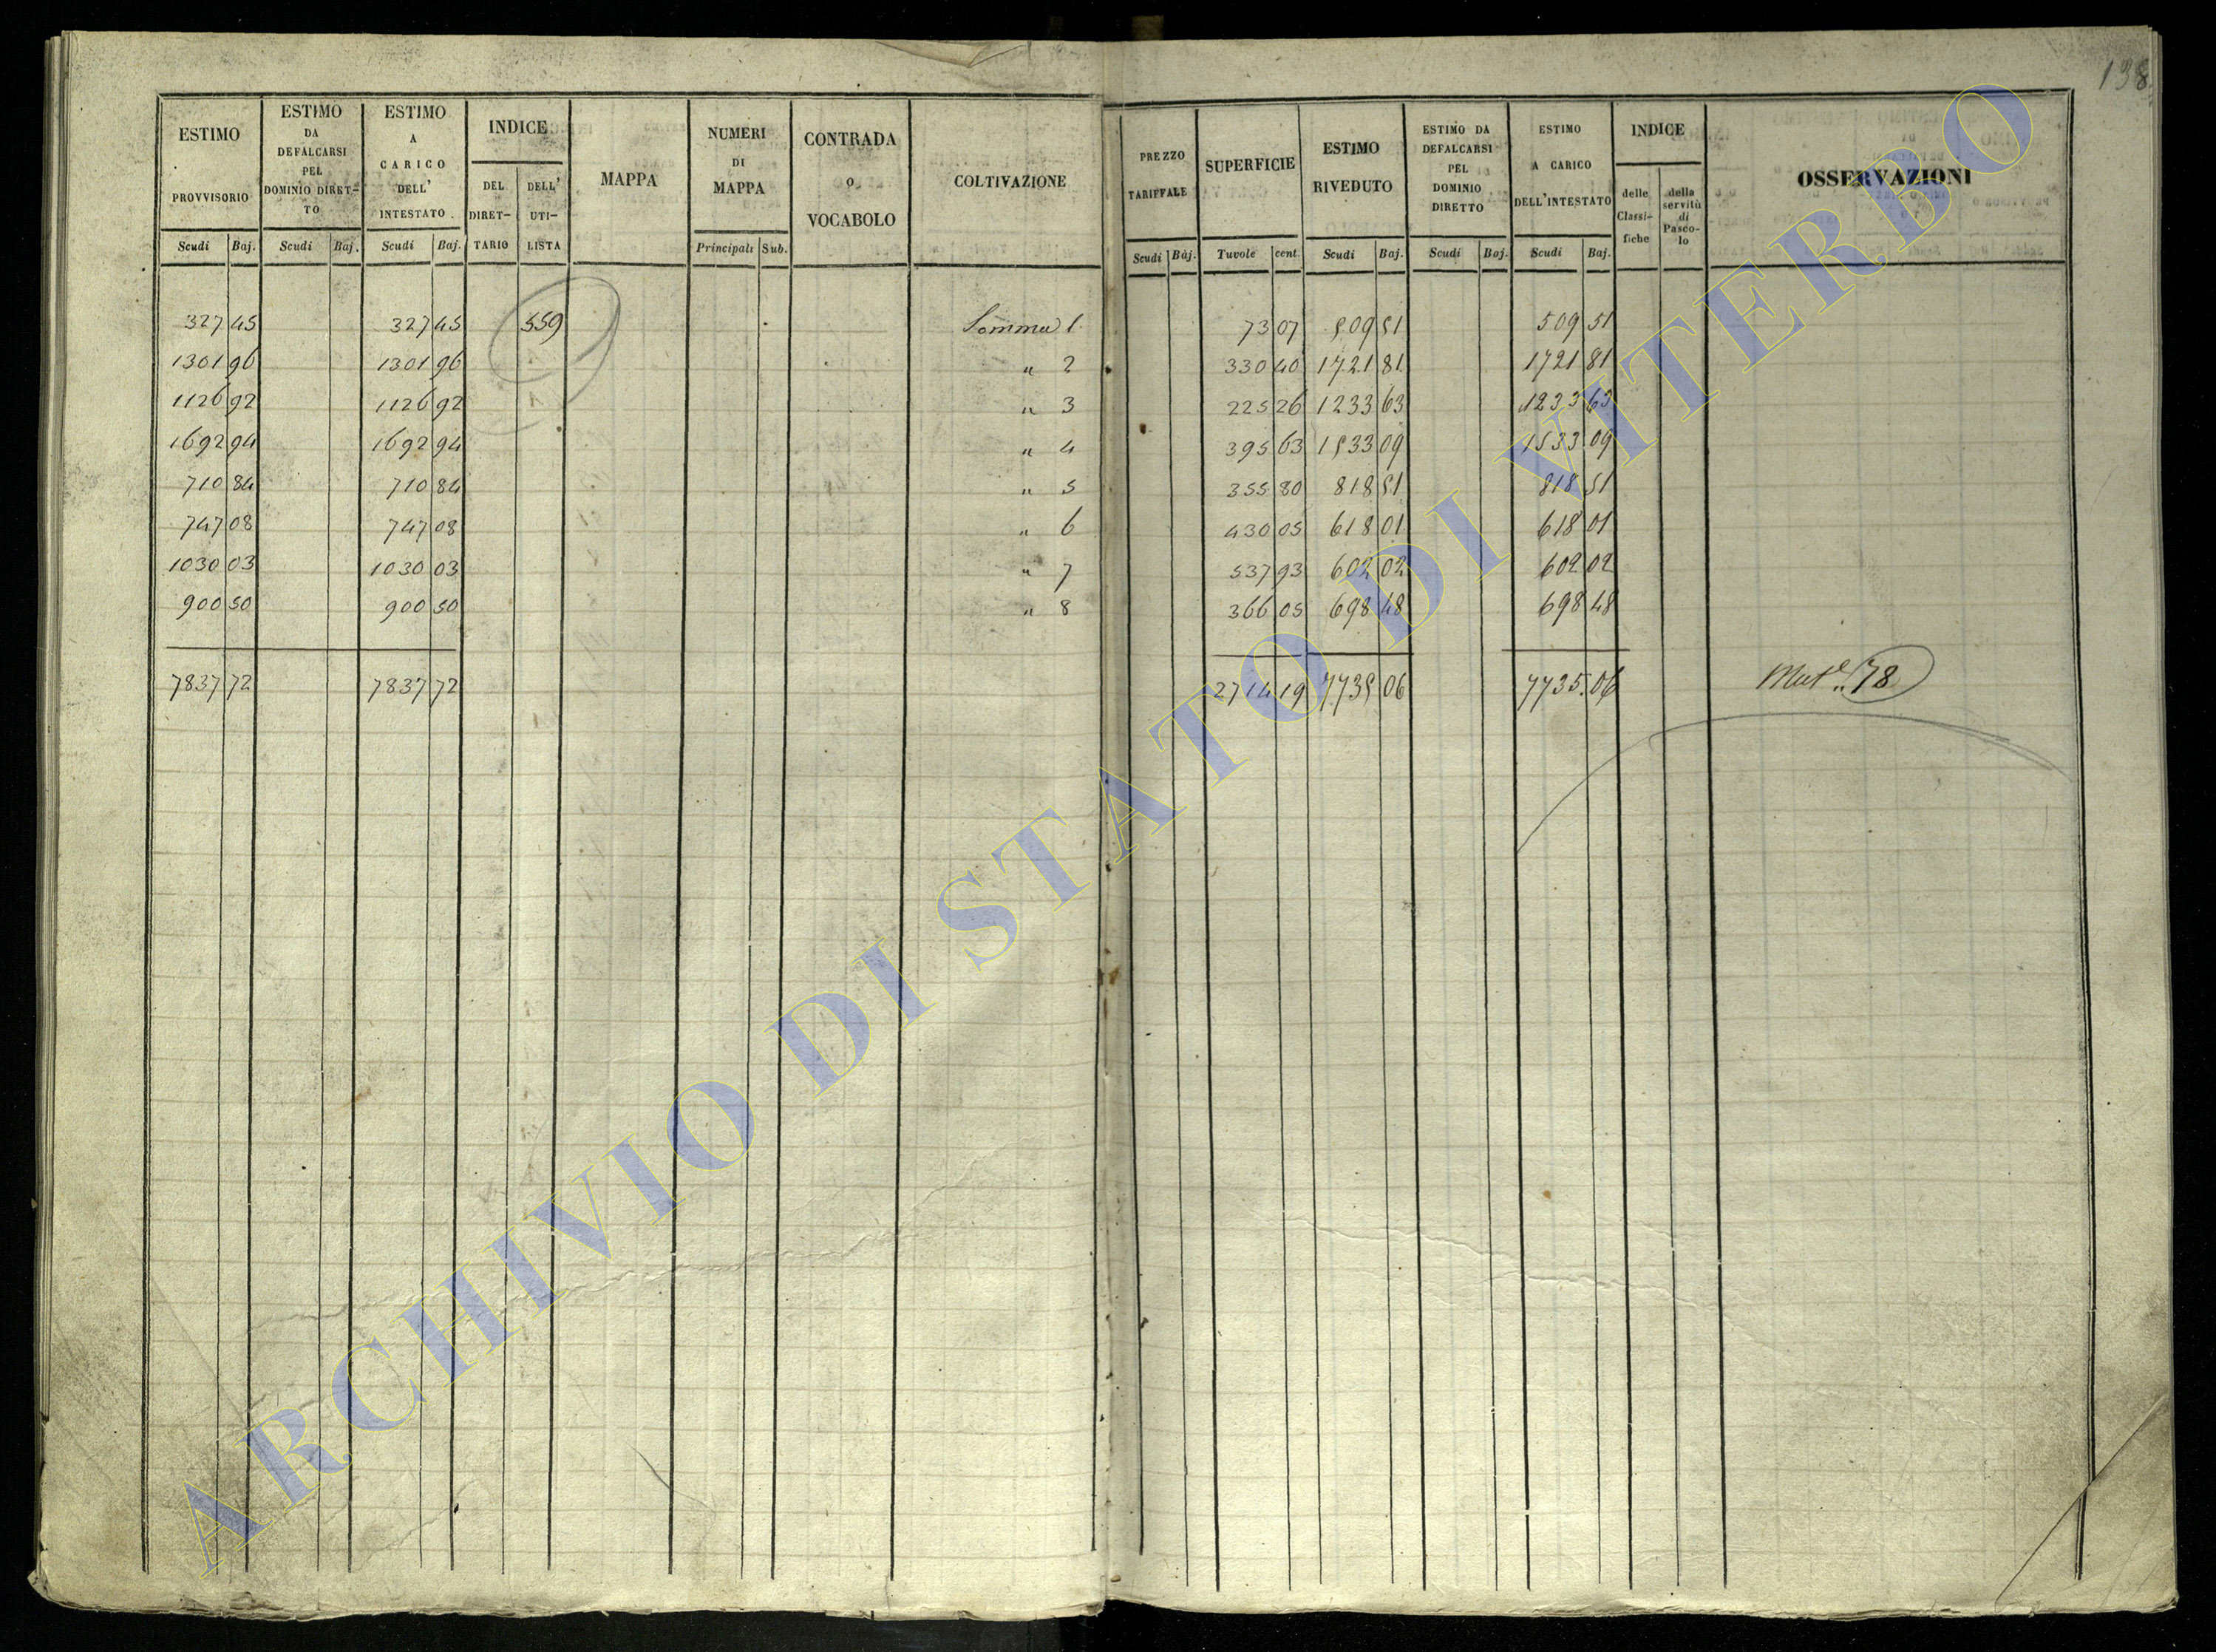 138
ESTIMO PROVVISORIO
ESTIMO DA DEFALCARSI PEL DOMINIO DIRET-TO
ESTIMO A CARICO DELL' INTESTATO
INDICE
DEL DIRET-TARIO
DELL' UTI-LISTA
MAPPA
NUMERI DI MAPPA
CONTRADA O VOCABOLO
COLTIVAZIONE
PREZZO TARIFFALE
SUPERFICIE
ESTIMO RIVEDUTO
ESTIMO DA DEFALCARSI PEL DOMINIO DIRETTO
ESTIMO A CARICO DELL'INTESTATO
INDICE
delle Classi-fiche
della servitù di Pasco-lo
OSSERVAZIONI
Scudi Baj. Scudi Baj. Scudi Baj. Principali Sub. Scudi Baj. Tavole cent. Scudi Baj. Scudi Baj. Scudi Baj.
327 45 327 45 559 Somma 1 73 07 509 51 509 51
1301 96 1301 96 " 2 330 40 1721 81 1721 81
1126 92 1126 92 " 3 225 26 1233 63 1233 63
1692 94 1692 94 " 4 395 63 1533 09 1533 09
710 84 710 84 " 5 355 80 818 51 818 51
747 08 747 08 " 6 430 05 618 01 618 01
1030 03 1030 03 " 7 537 93 602 02 602 02
900 50 900 50 " 8 366 05 698 48 698 48
7837 72 7837 72 2714 19 7735 06 7735 06 Mut.e 78
ARCHIVIO DI STATO DI VITERBO